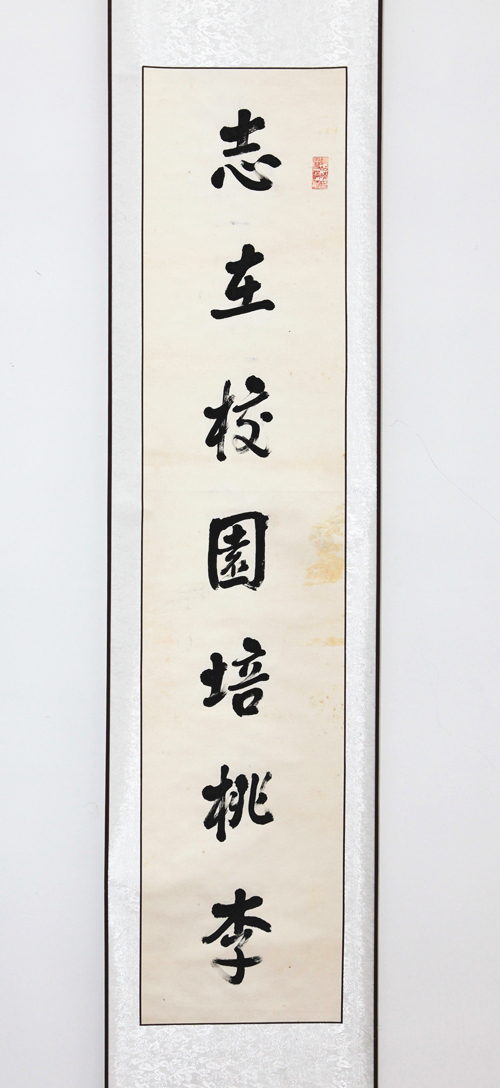 志在校園培桃李